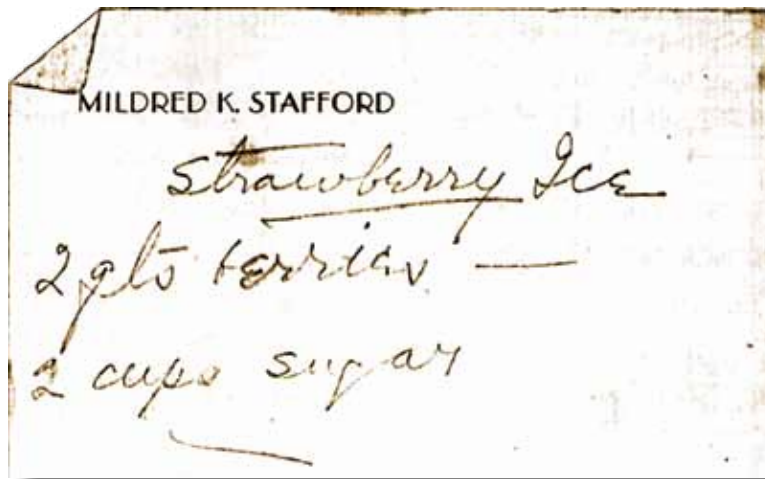 MILDRED K. STAFFORD
Strawberry Ice
2 qts berries —
2 cups sugar